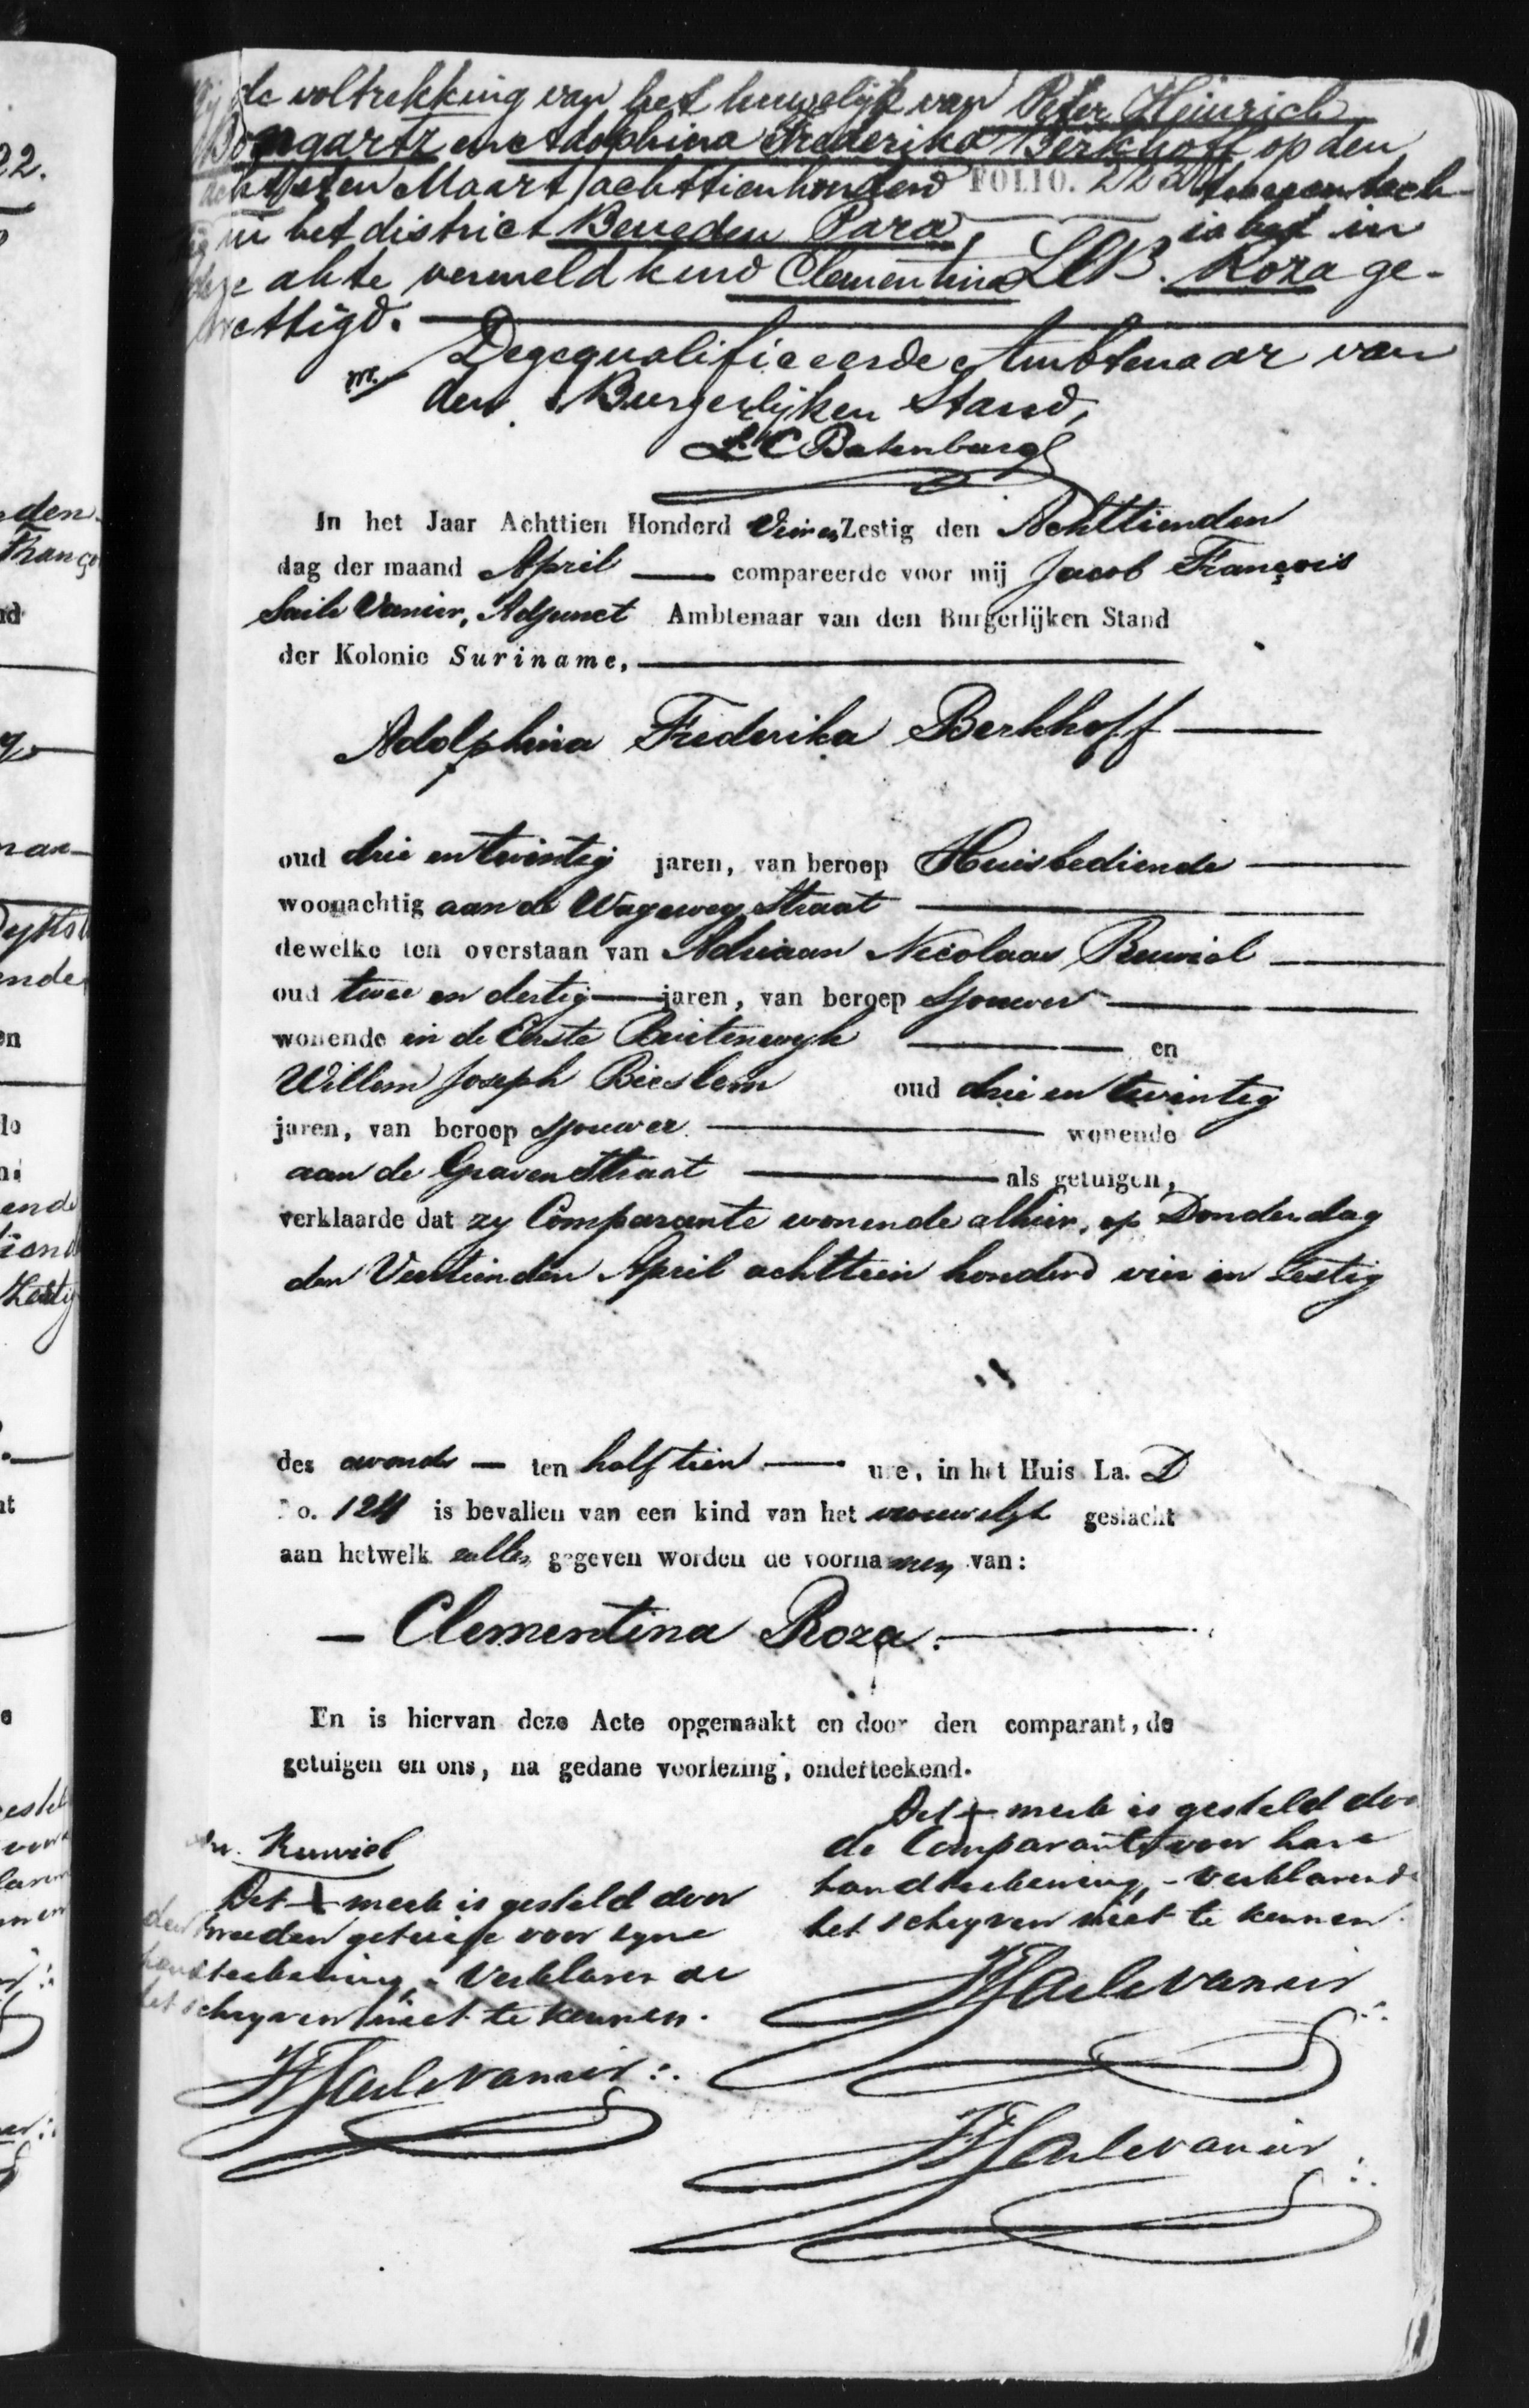 Bij de voltrekking van het huwelijk van Peter Heinrich
Bongartz en Adolphina Frederika Berkhoff op den
achtsten Maart achttienhonderd FOLIO. 223 twee en tach-
tig in het district Beneden Para, is het in
deze akte vermeld kind Clementina LCB. Roza ge-
wettigd.
De gequalificeerde Ambtenaar van
den Burgerlijken Stand,
L C Batenburg
In het Jaar Achttien Honderd Vier en Zestig den Achttienden
dag der maand April compareerde voor mij Jacob François
Saile Vanier, Adjunct Ambtenaar van den Burgerlijken Stand
der Kolonie Suriname,
Adolphina Frederika Berkhoff
oud drie en twintig jaren, van beroep Huisbediende
woonachtig aan de Wageweg Straat
dewelke ten overstaan van Adriaan Nicolaas Ruwiel
oud twee en dertig jaren, van beroep Sjouwer
wonende in de Eerste Buitenwyk en
Willem Joseph oud drie en twintig
jaren, van beroep sjouwer wonende
aan de Gravenstraat als getuigen,
verklaarde dat zy Comparante wonende alhier, op Donderdag
den Veertienden April achttien honderd vier en Zestig
des avonds ten half tien ure, in het Huis La. D
No. 124 is bevallen van een kind van het vrouwelyk geslacht
aan hetwelk zullen gegeven worden de voornamen van:
Clementina Roza.
En is hiervan deze Acte opgemaakt en door den comparant, de
getuigen en ons, na gedane voorlezing, onderteekend.
Het + merk is gesteld door
de Comparante voor hare
handteekening, - verklarende
het schryven niet te kennen.
JFSailevanier
Ruwiel
Het + merk is gesteld door
den tweeden getuige voor zyne
handteekening, - Verklarende
het schryven niet te kennen.
JFSailevanier
JFSailevanier
22.